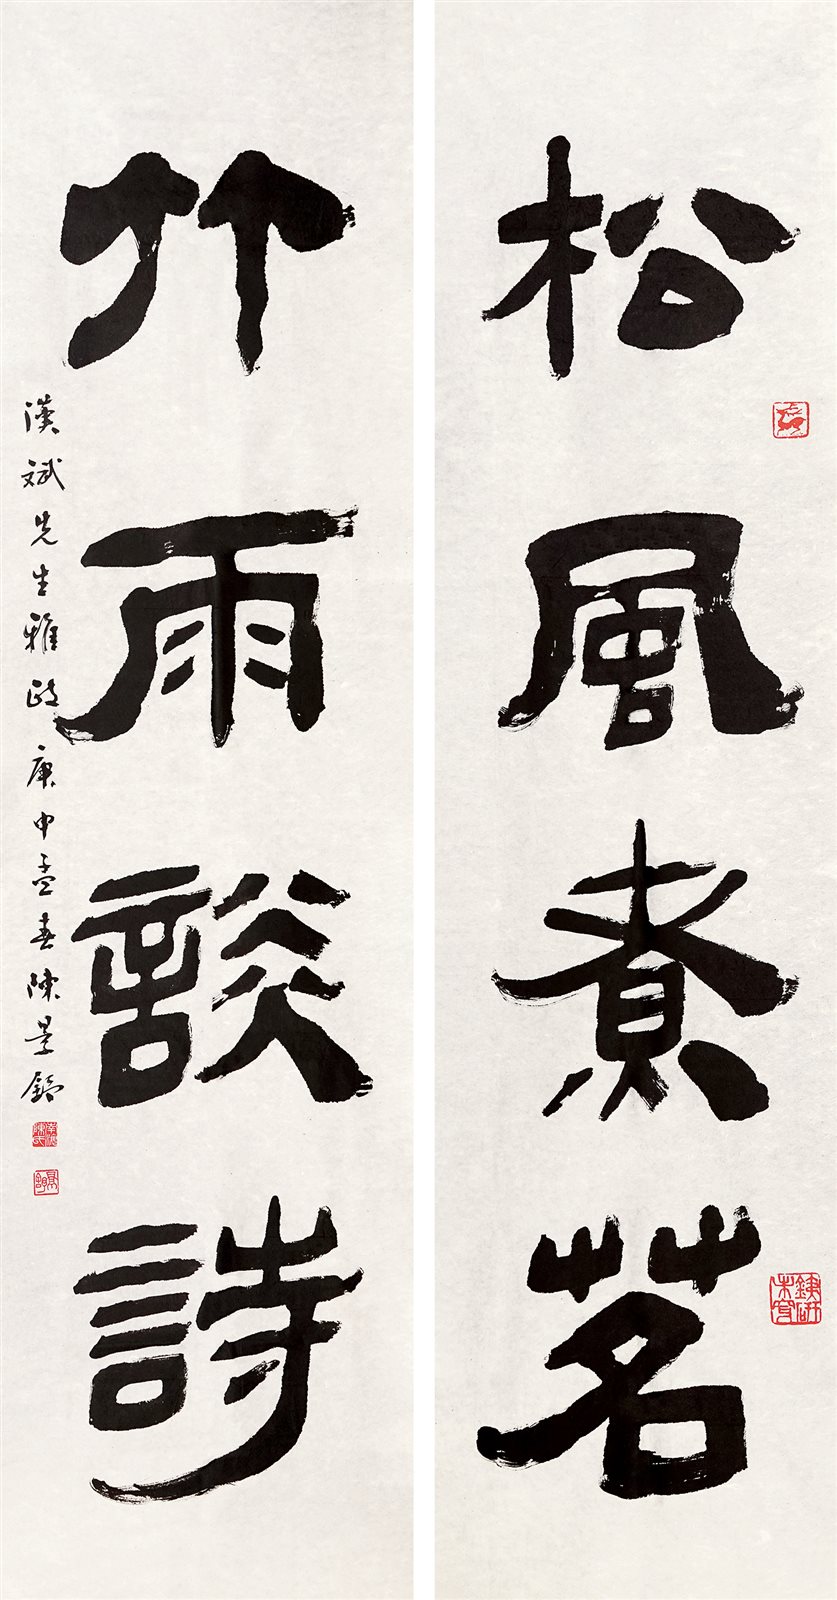 松風煮茗
竹雨談詩
漢斌先生雅政庚申孟春陳景舒